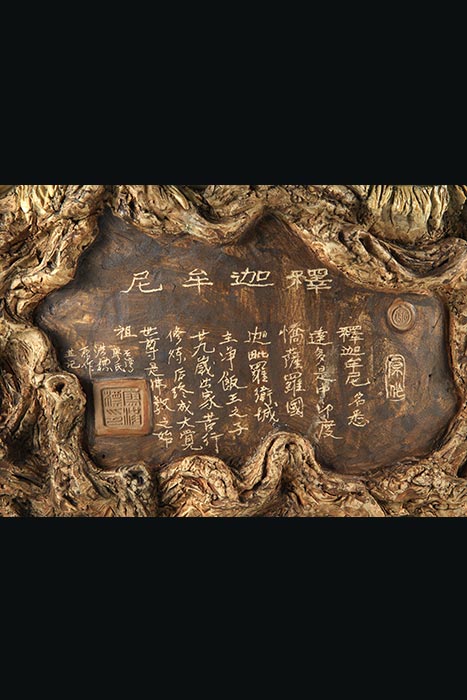 釋迦牟尼
釋迦牟尼名悉
達多是中印度
憍薩羅國
迦毗羅衛城
主净飯王之子
廿九歲出家苦行
修炼后終成大覺
世尊是佛教之始
祖